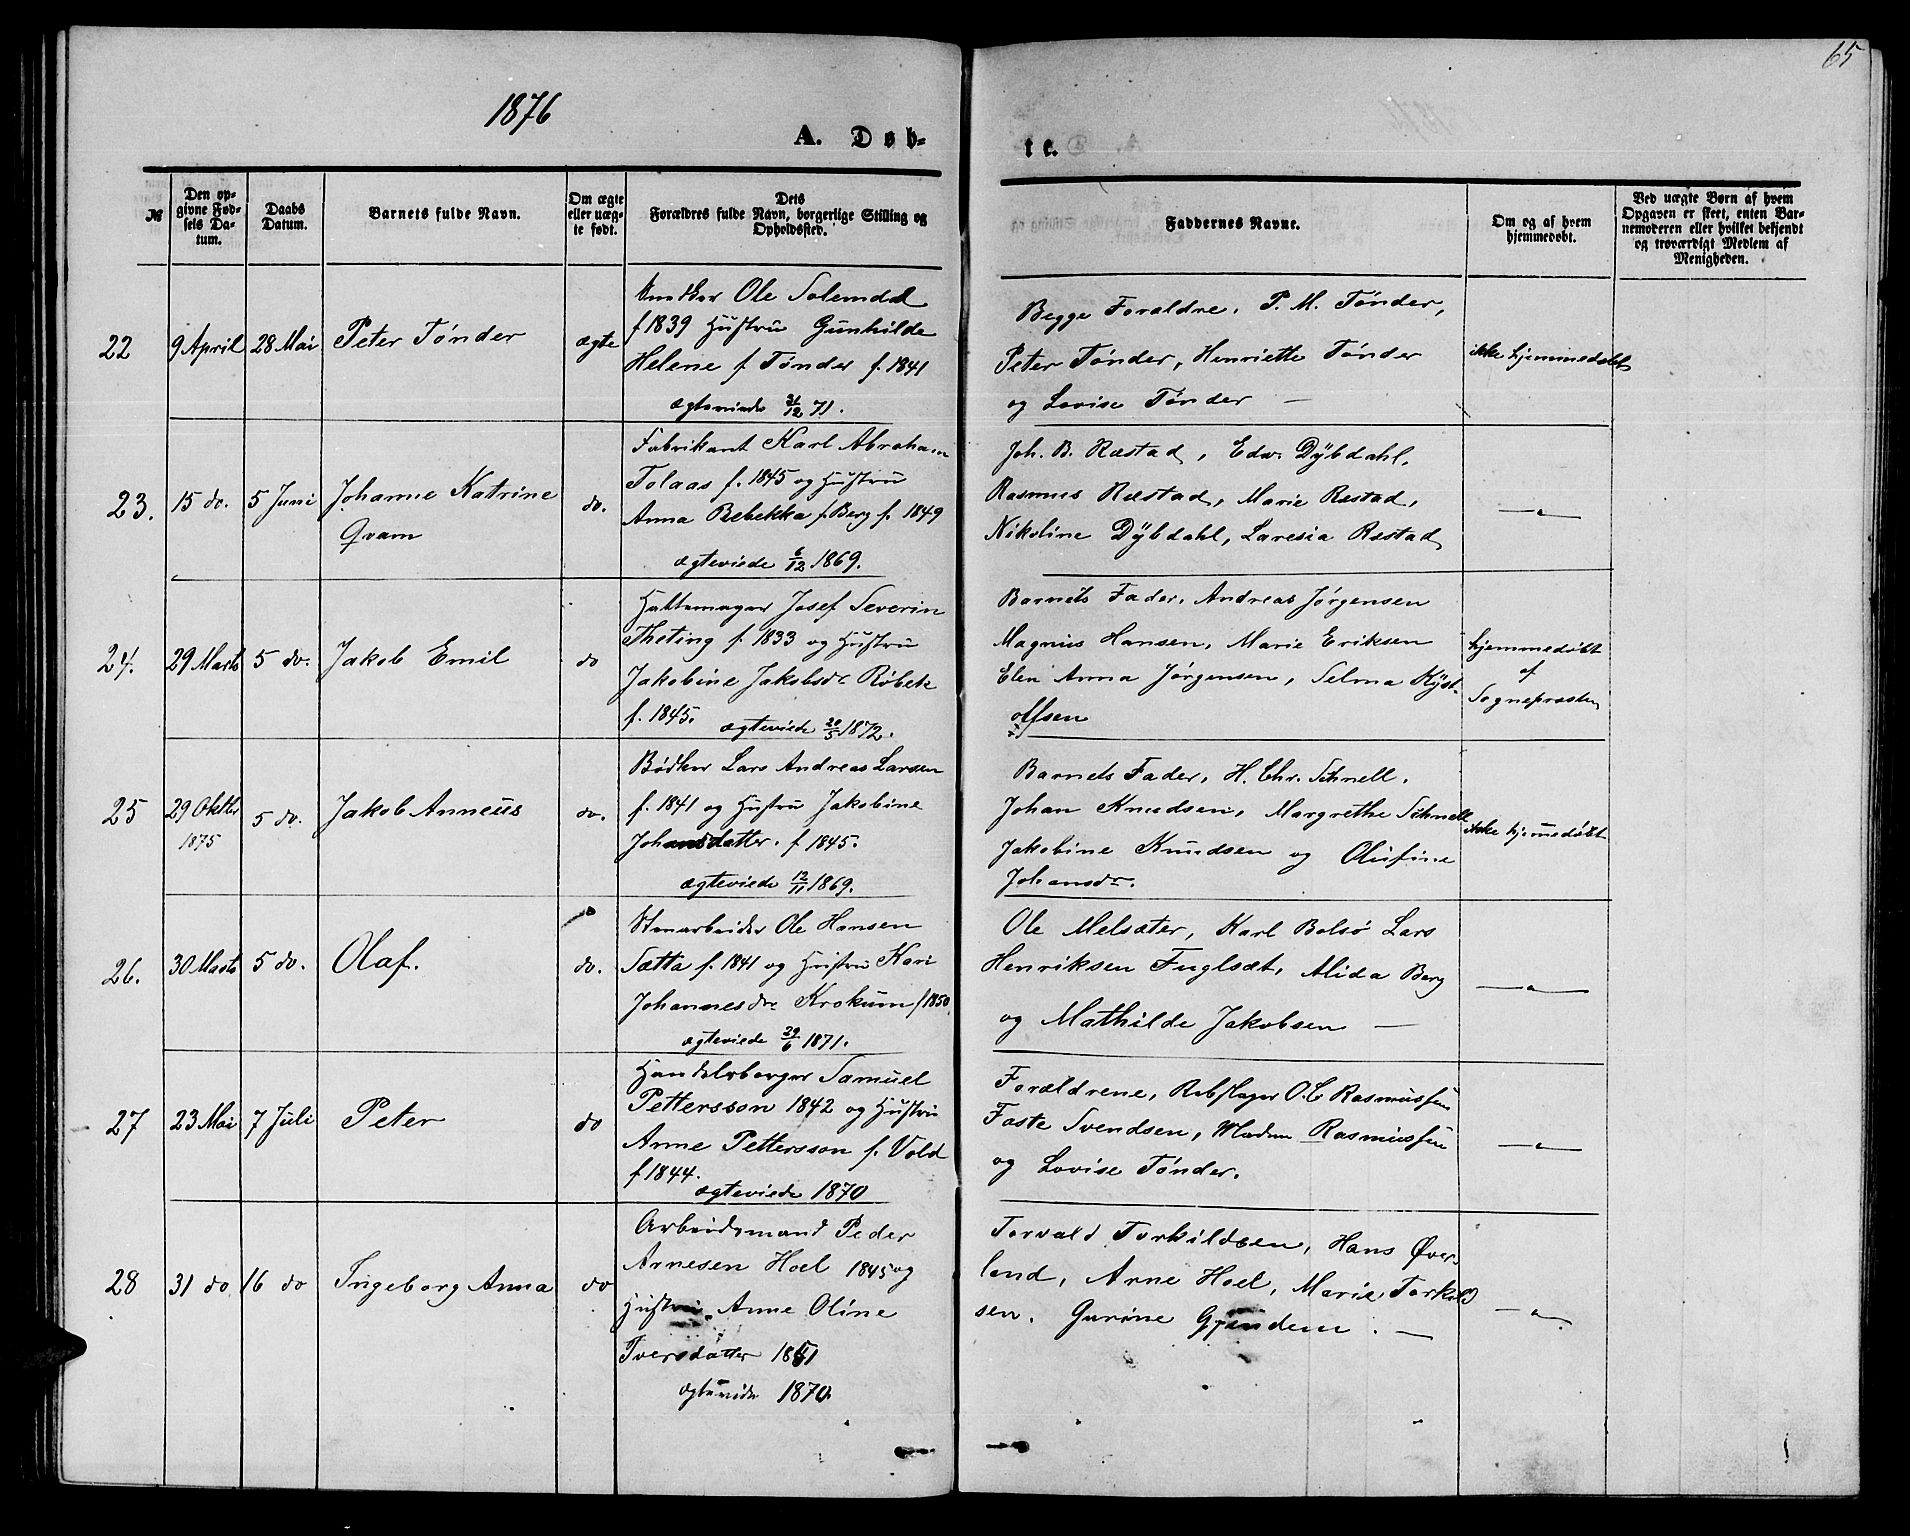 65
1876
A. Døb-
te.
№
Den op-
givne Fød-
sels Da-
tum.
Daabs
Datum.
Barnets fulde Navn.
Om ægte
eller uæg-
te født.
Dets
Forældres fulde Navn, borgerlige Stilling og
Opholdssted.
Faddernes Navne.
Om og af hvem
hjemmedøbt.
Ved uægte Børn af hvem
Opgaven er skeet, enten Bar-
nemoderen eller hvilket bekjendt
og troværdigt Medlem af
Menigheden.
22
9 April
28 Mai
Peter Tønder
ægte
Snedker Ole Solemdal
f 1839 Hustru Gunhilde
Helene f Tønder f. 1841
ægteviede 31/12 71.
Begge Forældre, P. M. Tønder,
Peter Tønder, Henriette Tønder
og Lovise Tønder —
ikke hjemmedøbt
23.
15 do.
5 Juni
Johanne Katrine
Qvam
do.
Fabrikant Karl Abraham
Tolaas f. 1845 og Hustru
Anna Rebekka f. Berg f. 1849
ægteviede 6/12 1869.
Joh. B. Ræstad, Edv. Dÿbdahl,
Rasmus Ræstad, Marie Ræstad,
Nikoline Dÿbdahl, Laresia Ræstad
—"—
24.
29 Marts
5 do.
Jakob Emil
do
Hattemager Josef Severin
Theting f. 1833 og Hustru
Jakobine Jakobsdr Røbek
f. 1845.
ægteviede 20/5 1872.
Barnets Fader, Andreas Jørgensen
Magnus Hansen, Marie Eriksen
Elen Anna Jørgensen, Selma Kÿst-
offsen
hjemmedøbt
af
Sognepræsten
25
29 Oktbr
1875
5 do.
Jakob Anneus
do.
Bødker Lars Andreas Larsen
f. 1841 og Hustru Jakobine
Johansdatter. f 1845.
ægteviede 12/11 1869.
Barnets Fader, H. Chr. Schnell.
Johan Knudsen, Margrethe Schnell
Jakobine Knudsen og Olufine
Johansdr.
ikke hjemmedøbt
26.
30 Marts
5 do.
Olaf.
do.
Stenarbeider Ole Hansen
Sætta f. 1841 og Hustru Kari
Johannesdr Krokum f 1850.
ægteviede 29/6 1871.
Ole Melsæter, Karl Bolsø Lars
Henriksen Fuglsæt, Alida Berg
og Mathilde Jakobsen —
—"—
27
23 Mai
7 Juli
Peter
do
Handelsborger Samuel
Pettersson 1842 og Hustru
Anne Pettersson f. Vold
f 1844.
ægteviede 1870
Forældrene, Rebslager O. C Rasmussen
Faste Svendsen, Madam Rasmussen
og Lovise Tønder.
—"—
28
31 do
16 do
Ingeborg Anna
do
Arbeidsmand Peder
Arnesen Hoel 1845 og
Hustru Anne Oline
Iversdatter 1851
ægteviede 1870.
Torvald Torkildsen, Hans Øver-
land, Arne Hoel, Marie Torkild
sen. Gurine Gjendem. —
—"—